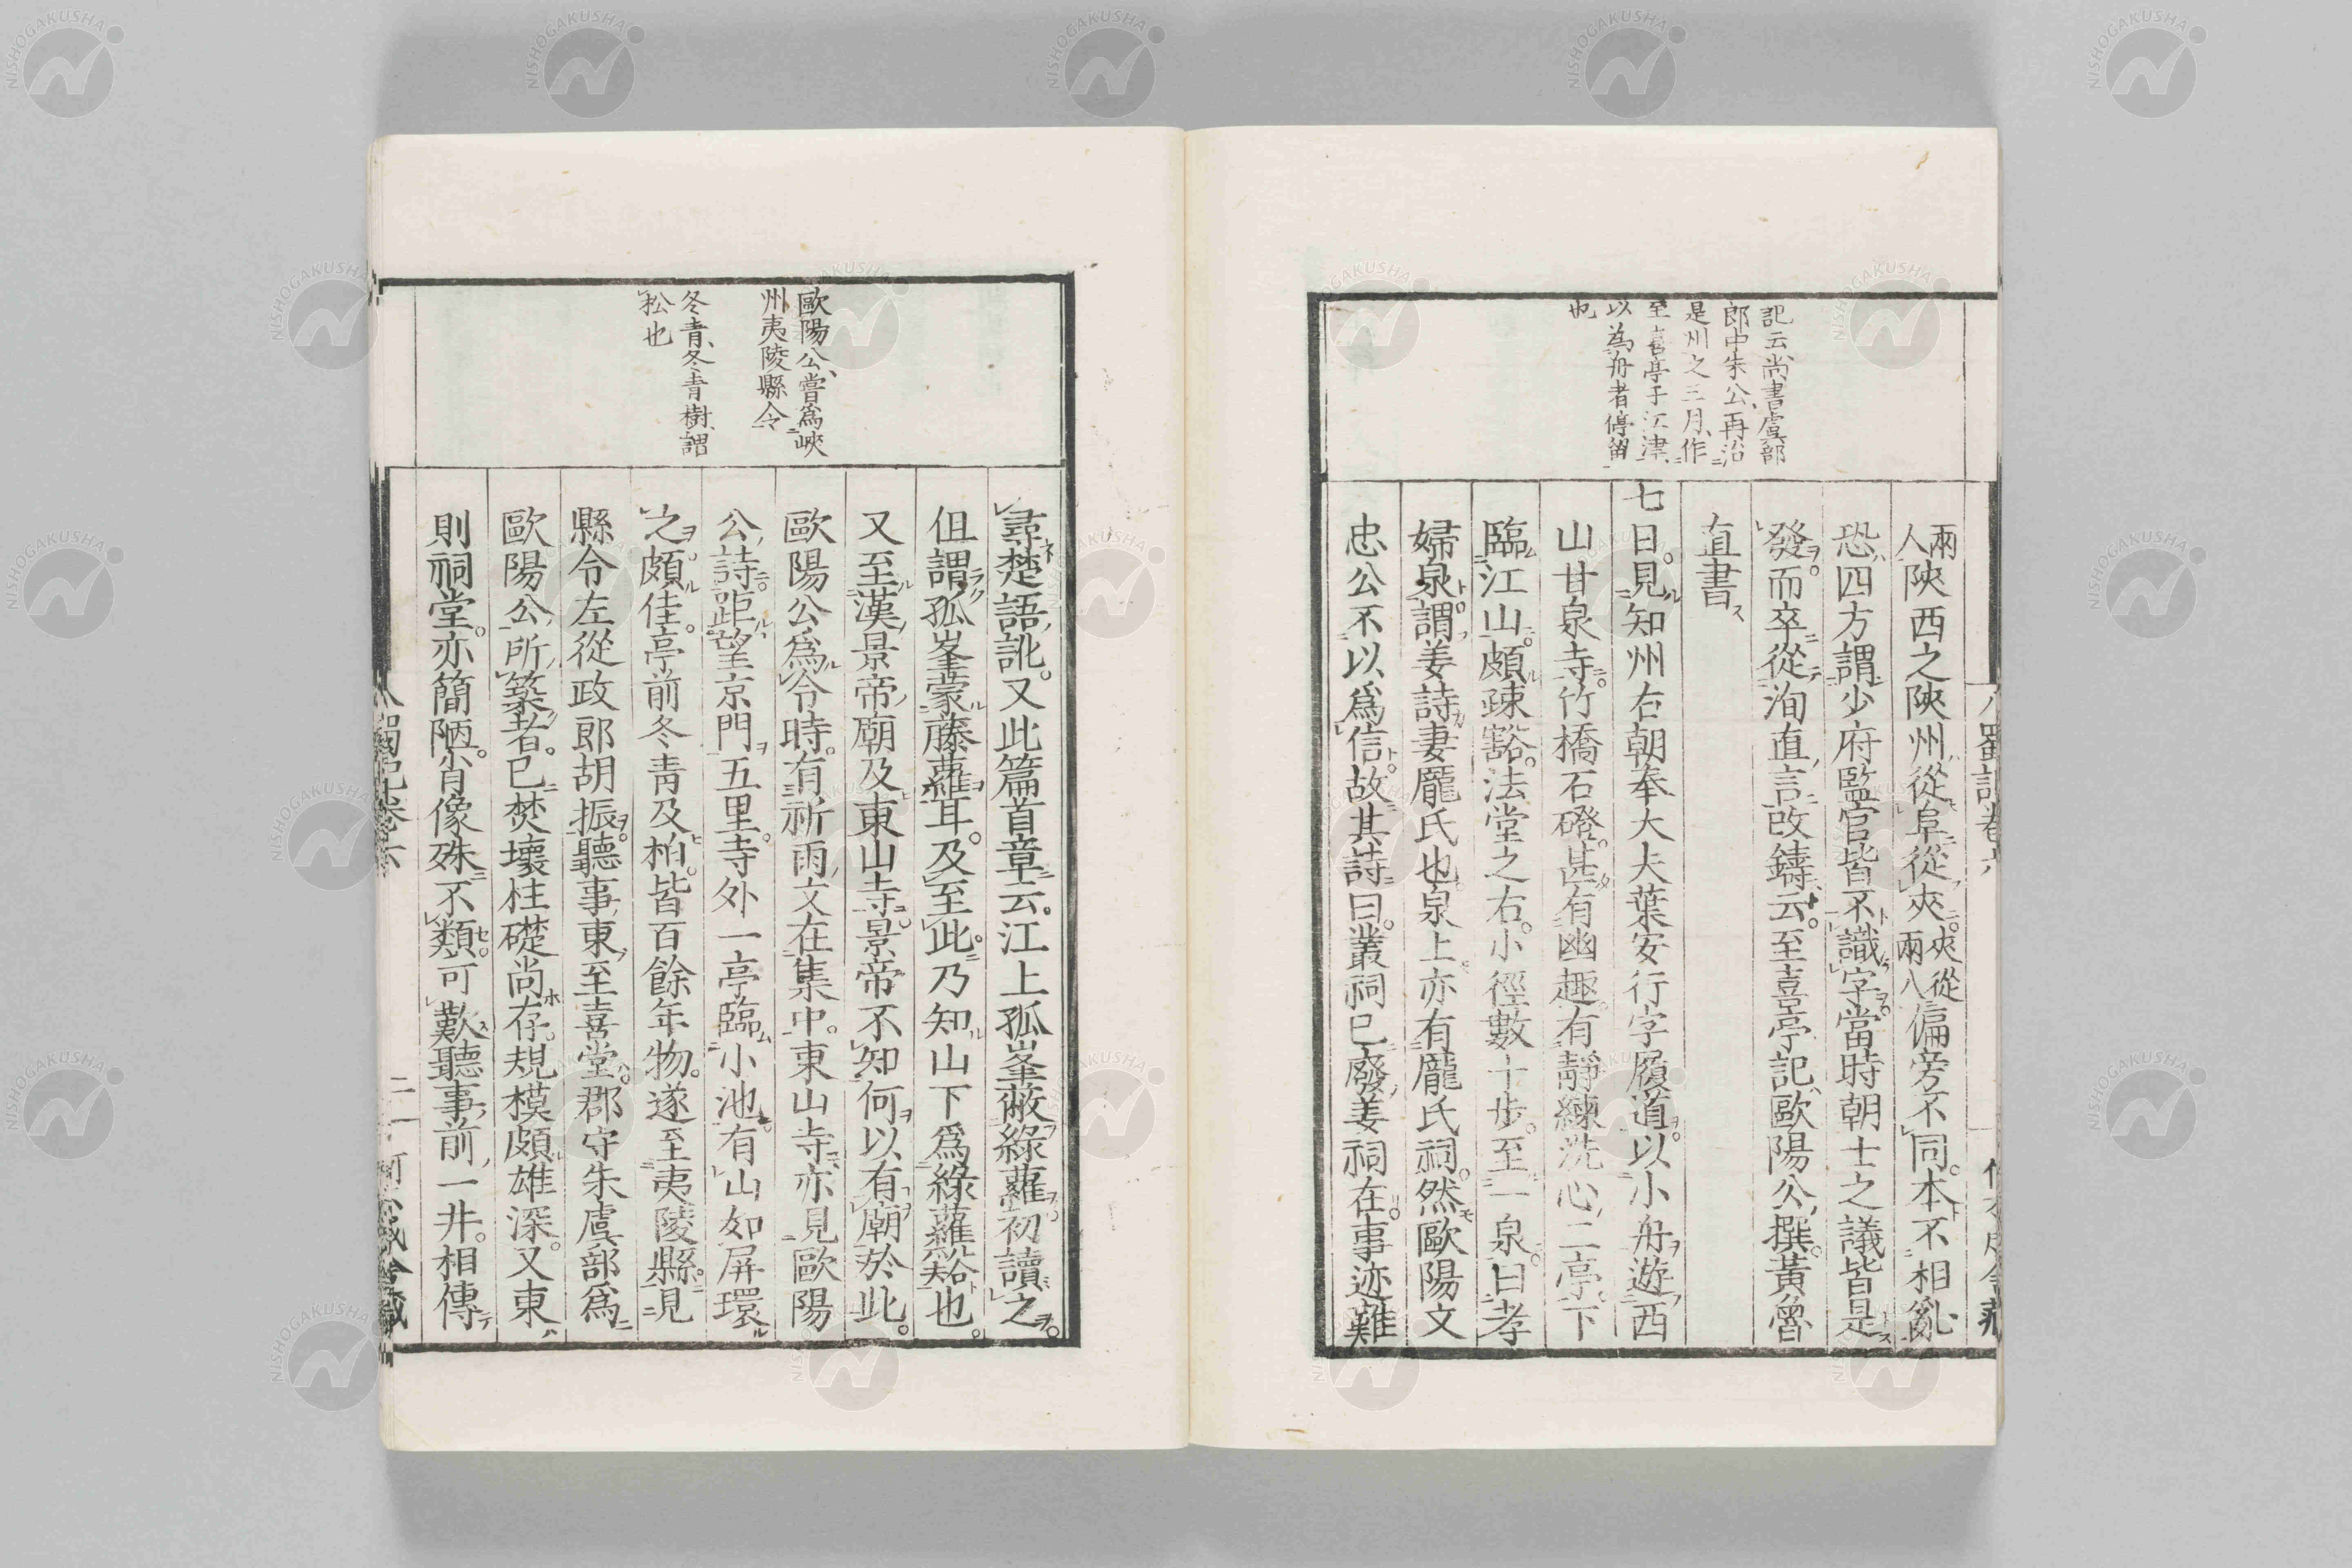 記云、尚書虞部
郎中朱公、再治
是州之三月、作
至喜亭于江津、
以為舟者停留
也
兩人陝西之陝州、從阜從夾。夾從兩八偏旁不同。本不相亂
恐四方謂少府監官皆不識字。當時朝士之議皆是
發。而卒從洵直言改鑄云。至喜亭記、歐陽公撰。黃魯
直書
七日。見知州右朝奉大夫葉安行字履道。以小舟遊西
山甘泉寺。竹橋石磴。甚有幽趣。有靜練洗心二亭。下
臨江山。頗疎豁。法堂之右。小徑數十步。至一泉。曰孝
婦泉。謂姜詩妻龐氏也。泉上亦有龐氏祠。然歐陽文
忠公不以爲信。故其詩曰。叢祠已廢姜祠在。事迹難
歐陽公、嘗爲峽
州夷陵縣令
冬青、冬青樹、謂
松也
尋楚語訛。又此篇首章云。江上孤峯蔽綠蘿。初讀之。
但謂孤峯蒙藤蘿耳。及至此。乃知山下爲綠蘿谿也。
又至漢景帝廟及東山寺。景帝不知何以有廟於此。
歐陽公爲令時。有祈雨文在集中。東山寺亦見歐陽
公詩。距望京門五里。寺外一亭臨小池。有山如屏環
之。頗佳。亭前冬青及柏。皆百餘年物。遂至夷陵縣。見
縣令左從政郎胡振。聽事東至喜堂。郡守朱虞部爲
歐陽公所築者。已焚壞。柱礎尚存。規模頗雄深。又東
則祠堂。亦簡陋。肖像殊不類。可歎。聽事前一井。相傳